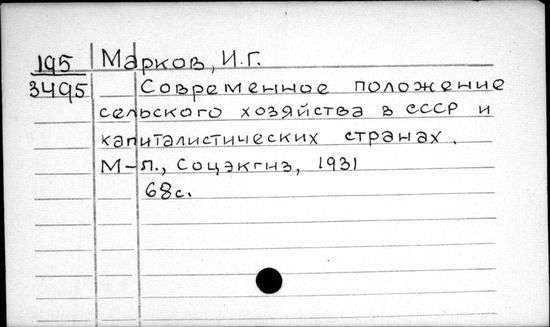 195 Марков, И.Г.
3495 Современное положение
сельского хозяйства в СССР и
капиталистических странах.
М-Л., Соцэкгиз, 1931
68с.